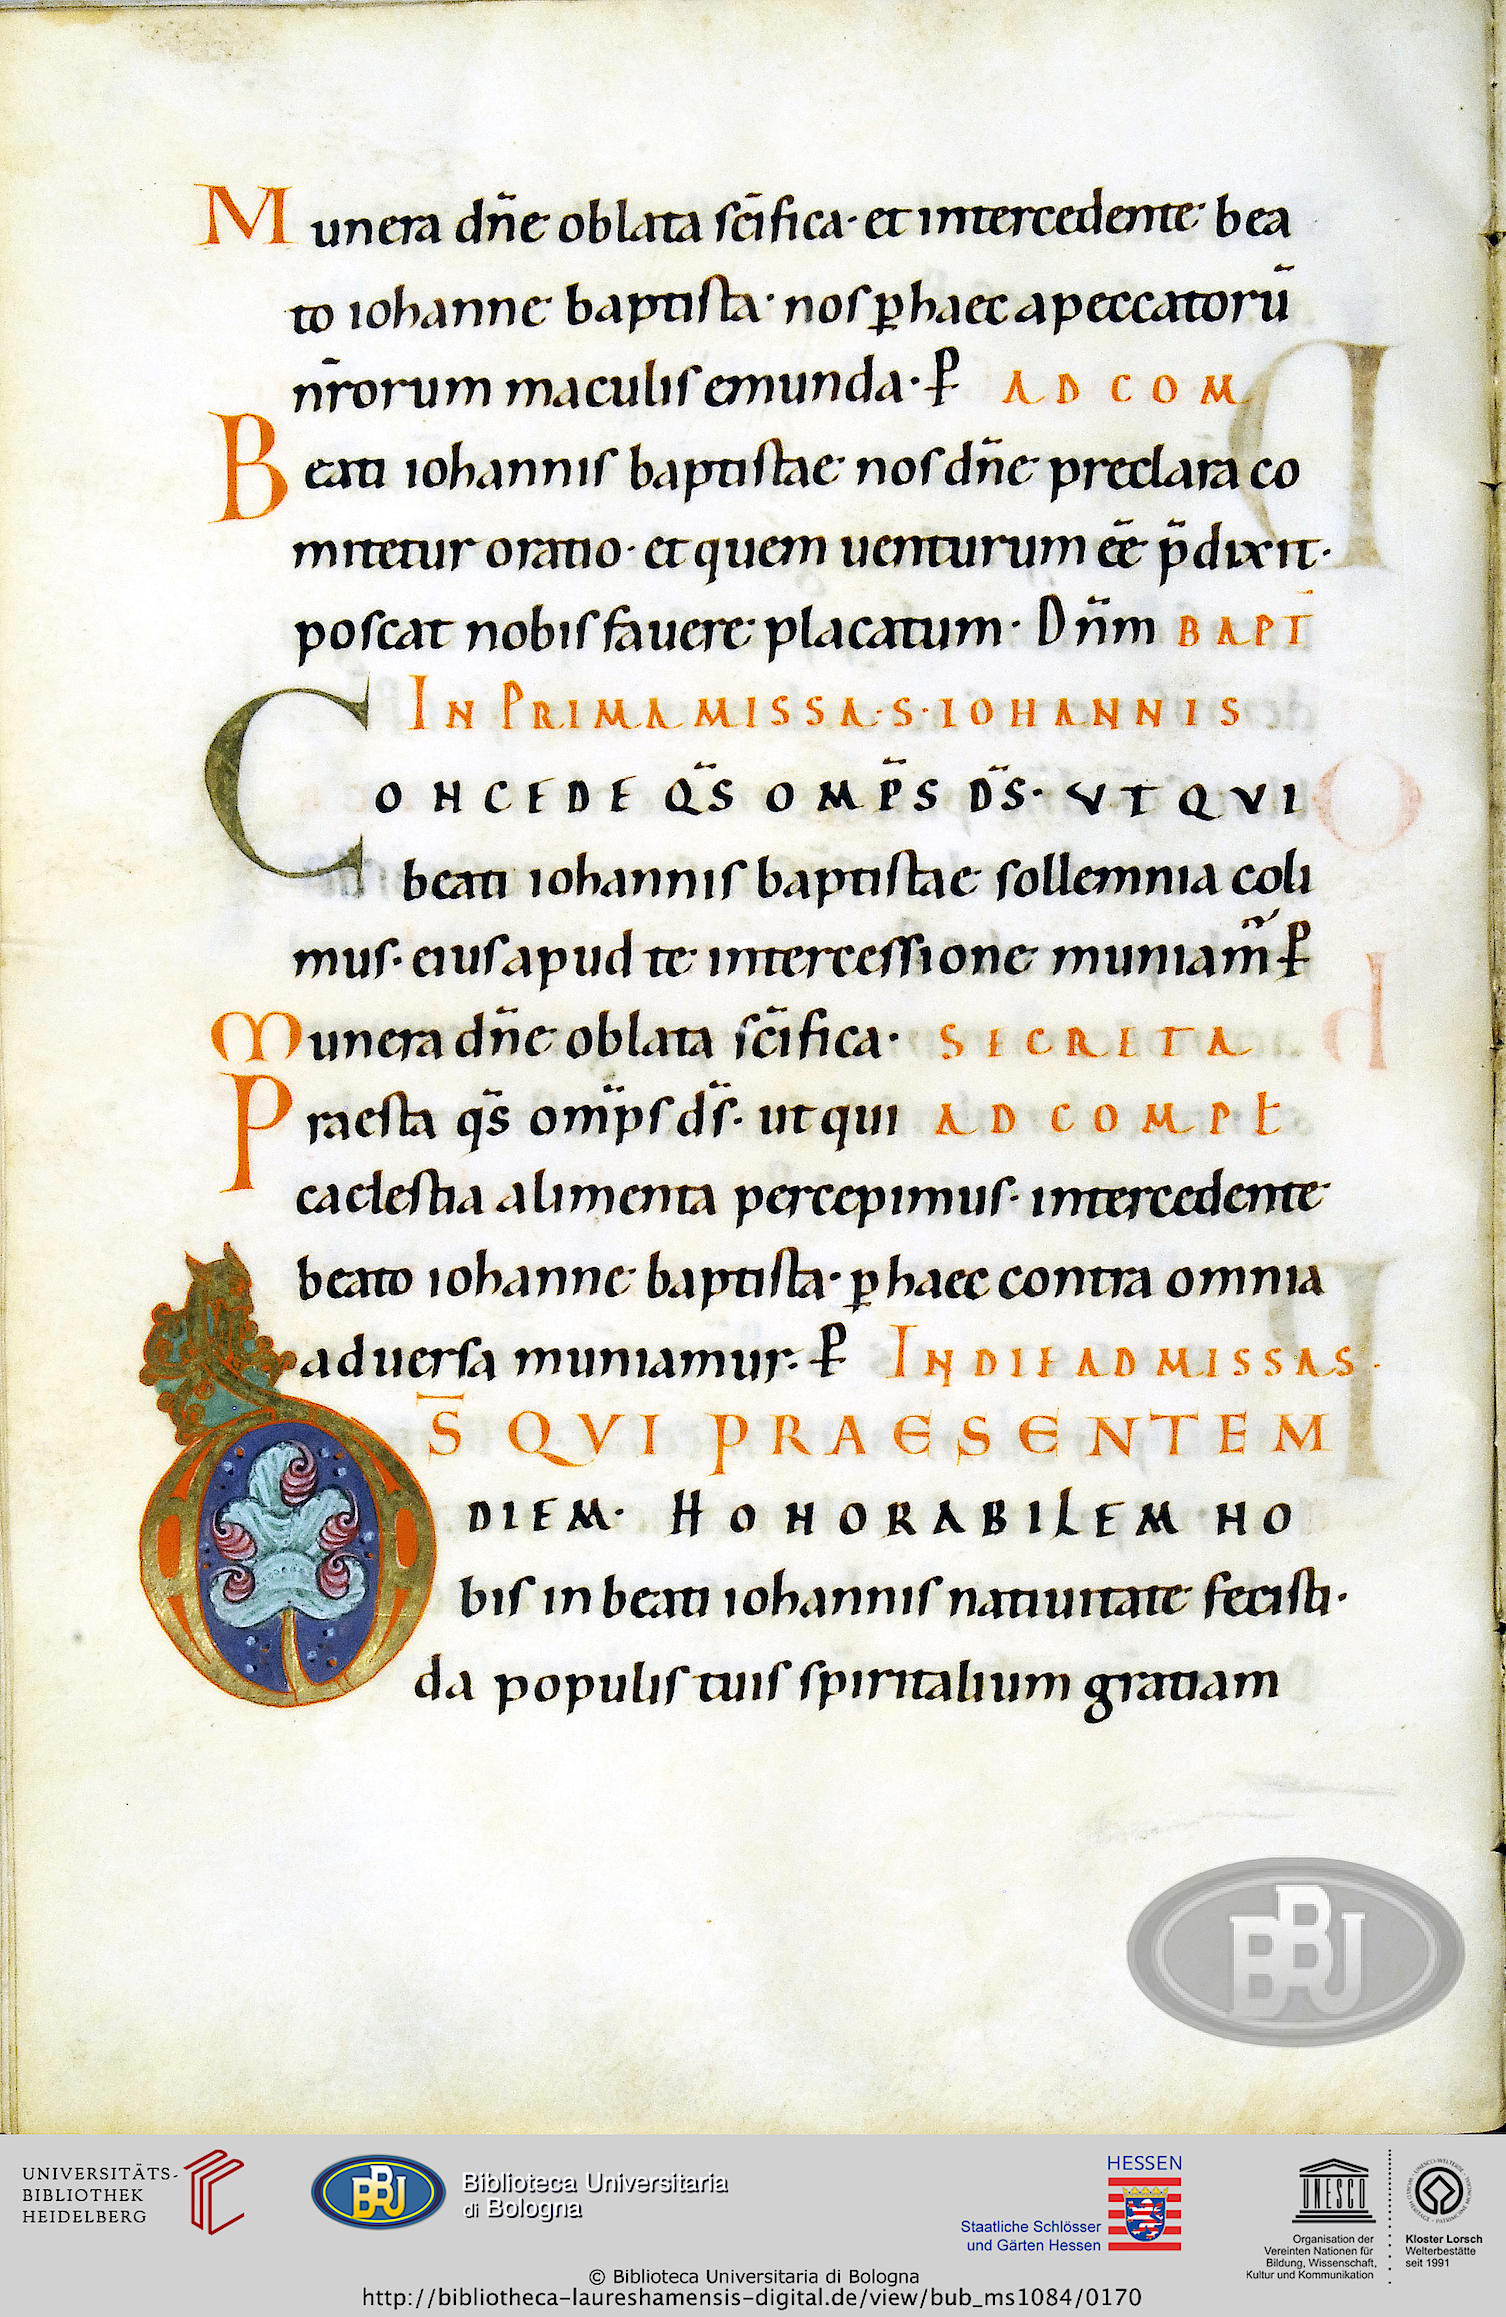 Munera dñe oblata sc̄ifica· et intercedente bea
to iohanne baptista· nos ꝑ haec a peccatorū
nr̄orum maculis emunda· ꝑ AD COM
Beati iohannis baptistae nos dñe preclara co
mitetur oratio· et quem uenturum eē p̄dixit·
poscat nobis fauere placatum· Dñm BAPT̄
IN PRIMA MISSA·S·IOHANNIS
CONCEDE QS̄ OMP̄S DS̄· UT QVI
beati iohannis baptistae sollemnia coli
mus· eius apud te intercessione muniam̄ ꝑ
Munera dñe oblata sc̄ifica· SECRETA
Praesta qs̄ om̄ps ds̄· ut qui AD COMPL
caelestia alimenta percepimus· intercedente
beato iohanne baptista· ꝑ haec contra omnia
aduersa muniamur· ꝑ IN DIE AD MISSAS·
DS̄ QVI PRAESENTEM
DIEM· HONORABILEM NO
bis in beati iohannis natiuitate fecisti·
da populis tuis spiritalium gratiam
BBU
UNIVERSITÄTS-
BIBLIOTHEK
HEIDELBERG
BBU
Biblioteca Universitaria
di Bologna
HESSEN
Staatliche Schlösser
und Gärten Hessen
UNESCO
Organisation der
Vereinten Nationen für
Bildung, Wissenschaft,
Kultur und Kommunikation
Kloster Lorsch
Welterbestätte
seit 1991
© Biblioteca Universitaria di Bologna
http://bibliotheca-laureshamensis-digital.de/view/bub_ms1084/0170